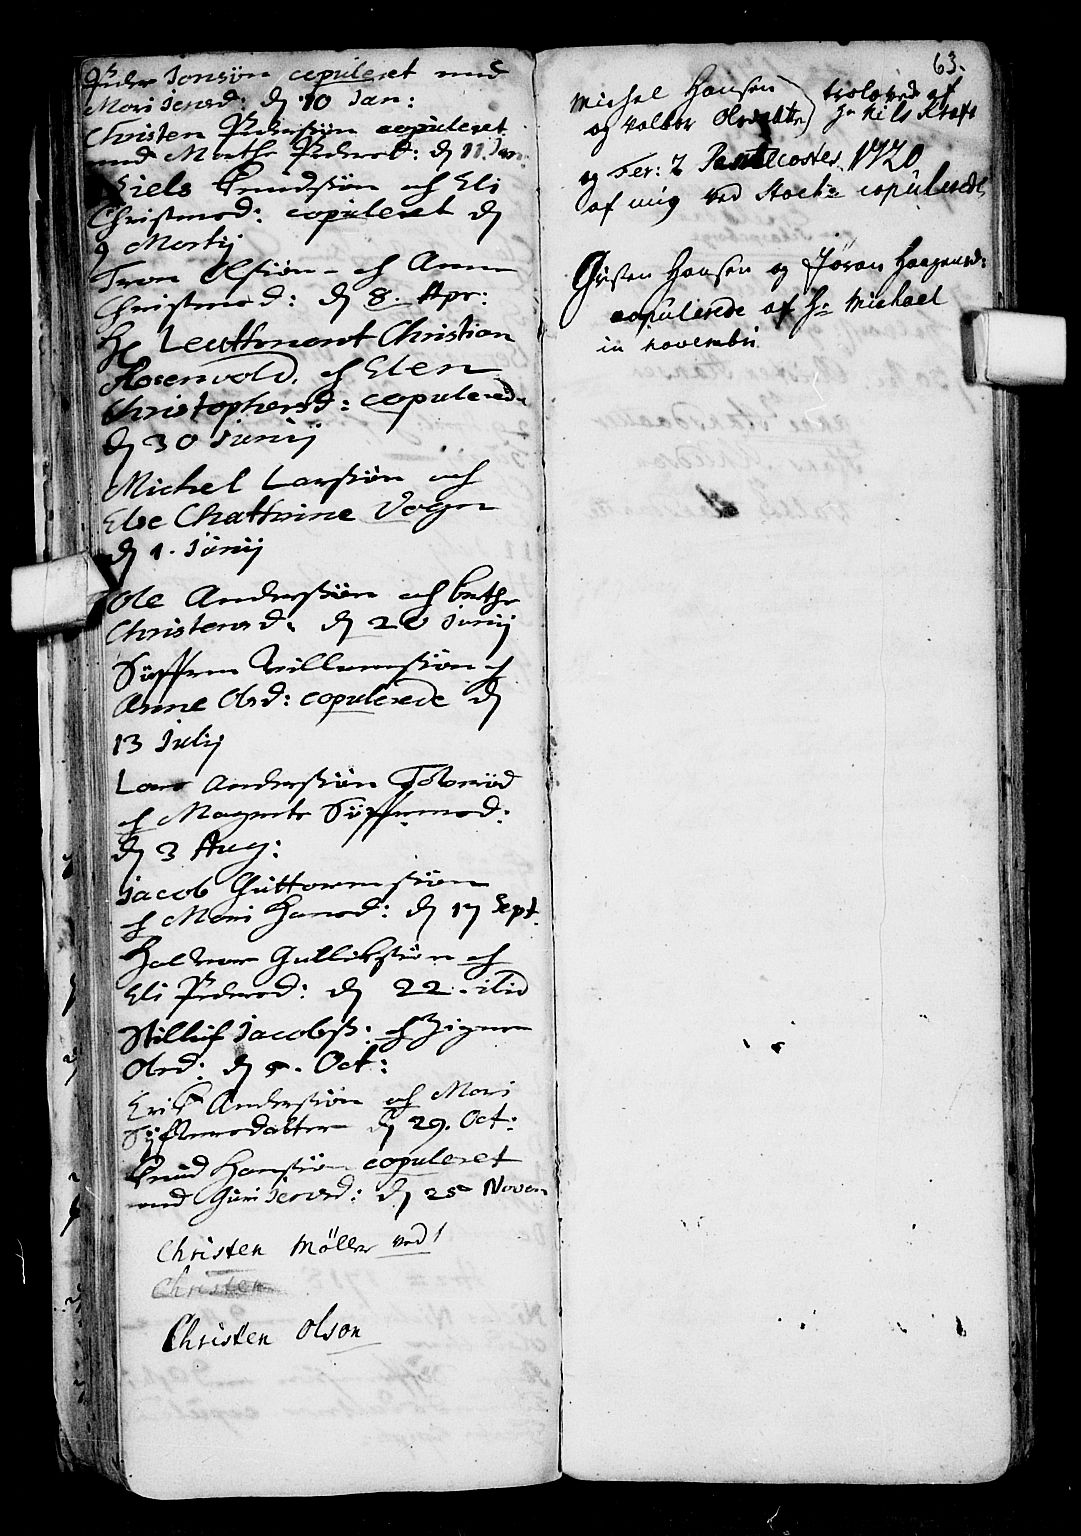 Peder Jonsøn copuleret med
Mari Jensd: d 10 Jan:
Christen Pedersøn copuleret
med Marthe Pedersd: d 11. Jan:
Niels Knudsøn och Eli
Christensd: copuleret d
9 Martij
Tron Olsøn och Anne
Christensd: d 8. Apr:
Hr Leuttnant Christian
Rosenvold och Elen
Christophersd: copulerede
d 30 Junij
Michel Larssøn och
Else Chattrine Vogn
d 1. Junij
Ole Anderssøn och Berthe
Christensd: d 20 Junij
Søffren Villumsøn och
Anne Olsd: copulerede d
13 Julij
Lars Anderssøn
och Magrete Søffrensd:
d 3 Aug:
Jacob Guttormssøn
och Mari Hansd: d 17 Sept.
Halvor Gulliksøn och
Eli Pedersd: d 22. itid
Jacobss: och Signe
Olsd: d 5. Oct:
Erik Anderssøn och Mari
Søffrensdatter d 29. Oct:
Knud Hanssøn copuleret
med Guri Iversd: d 25 Novem
Christen Møller ved
Christen
Christen Olson
63.
Michel Hansen troloved af
og Valbor Olsdatter Hr Nils Kraft
og Fer: 2 Pentecostes 1720
af mig ved copulerede
Christen Hansen og Jøran Haagensd:
copulerede af Hr Michael
in novembri